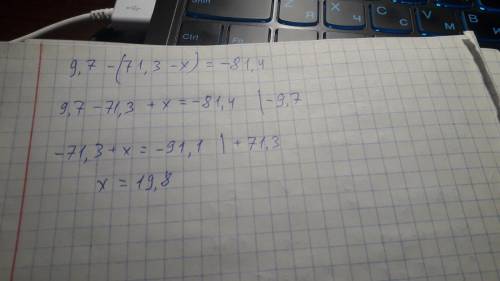 Shift
Ctrl
Fn
Z
Я
X
Ч
C
С
V
М
9,7 - (71,3 - x) = -81,4
9,7 - 71,3 + x = -81,4 | -9,7
-71,3 + x = -91,1 | +71,3
x = 19,8